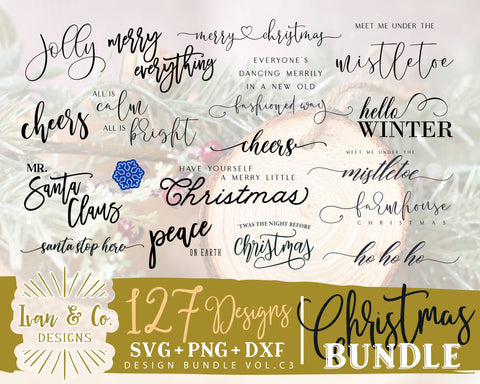 Jolly
merry
everything
merry christmas
EVERYONE'S
DANCING MERRILY
IN A NEW OLD
fashioned way
MEET ME UNDER THE
mistletoe
cheers
ALL IS
calm
ALL IS
bright
cheers
hello
WINTER
MR.
Santa
Claus
HAVE YOURSELF
A MERRY LITTLE
Christmas
MEET ME UNDER THE
mistletoe
farmhouse
CHRISTMAS
santa stop here
peace
ON EARTH
'TWAS THE NIGHT BEFORE
christmas
ho ho ho
Ivan & Co.
DESIGNS
127 Designs
SVG + PNG + DXF
DESIGN BUNDLE VOL.C3
Christmas
BUNDLE